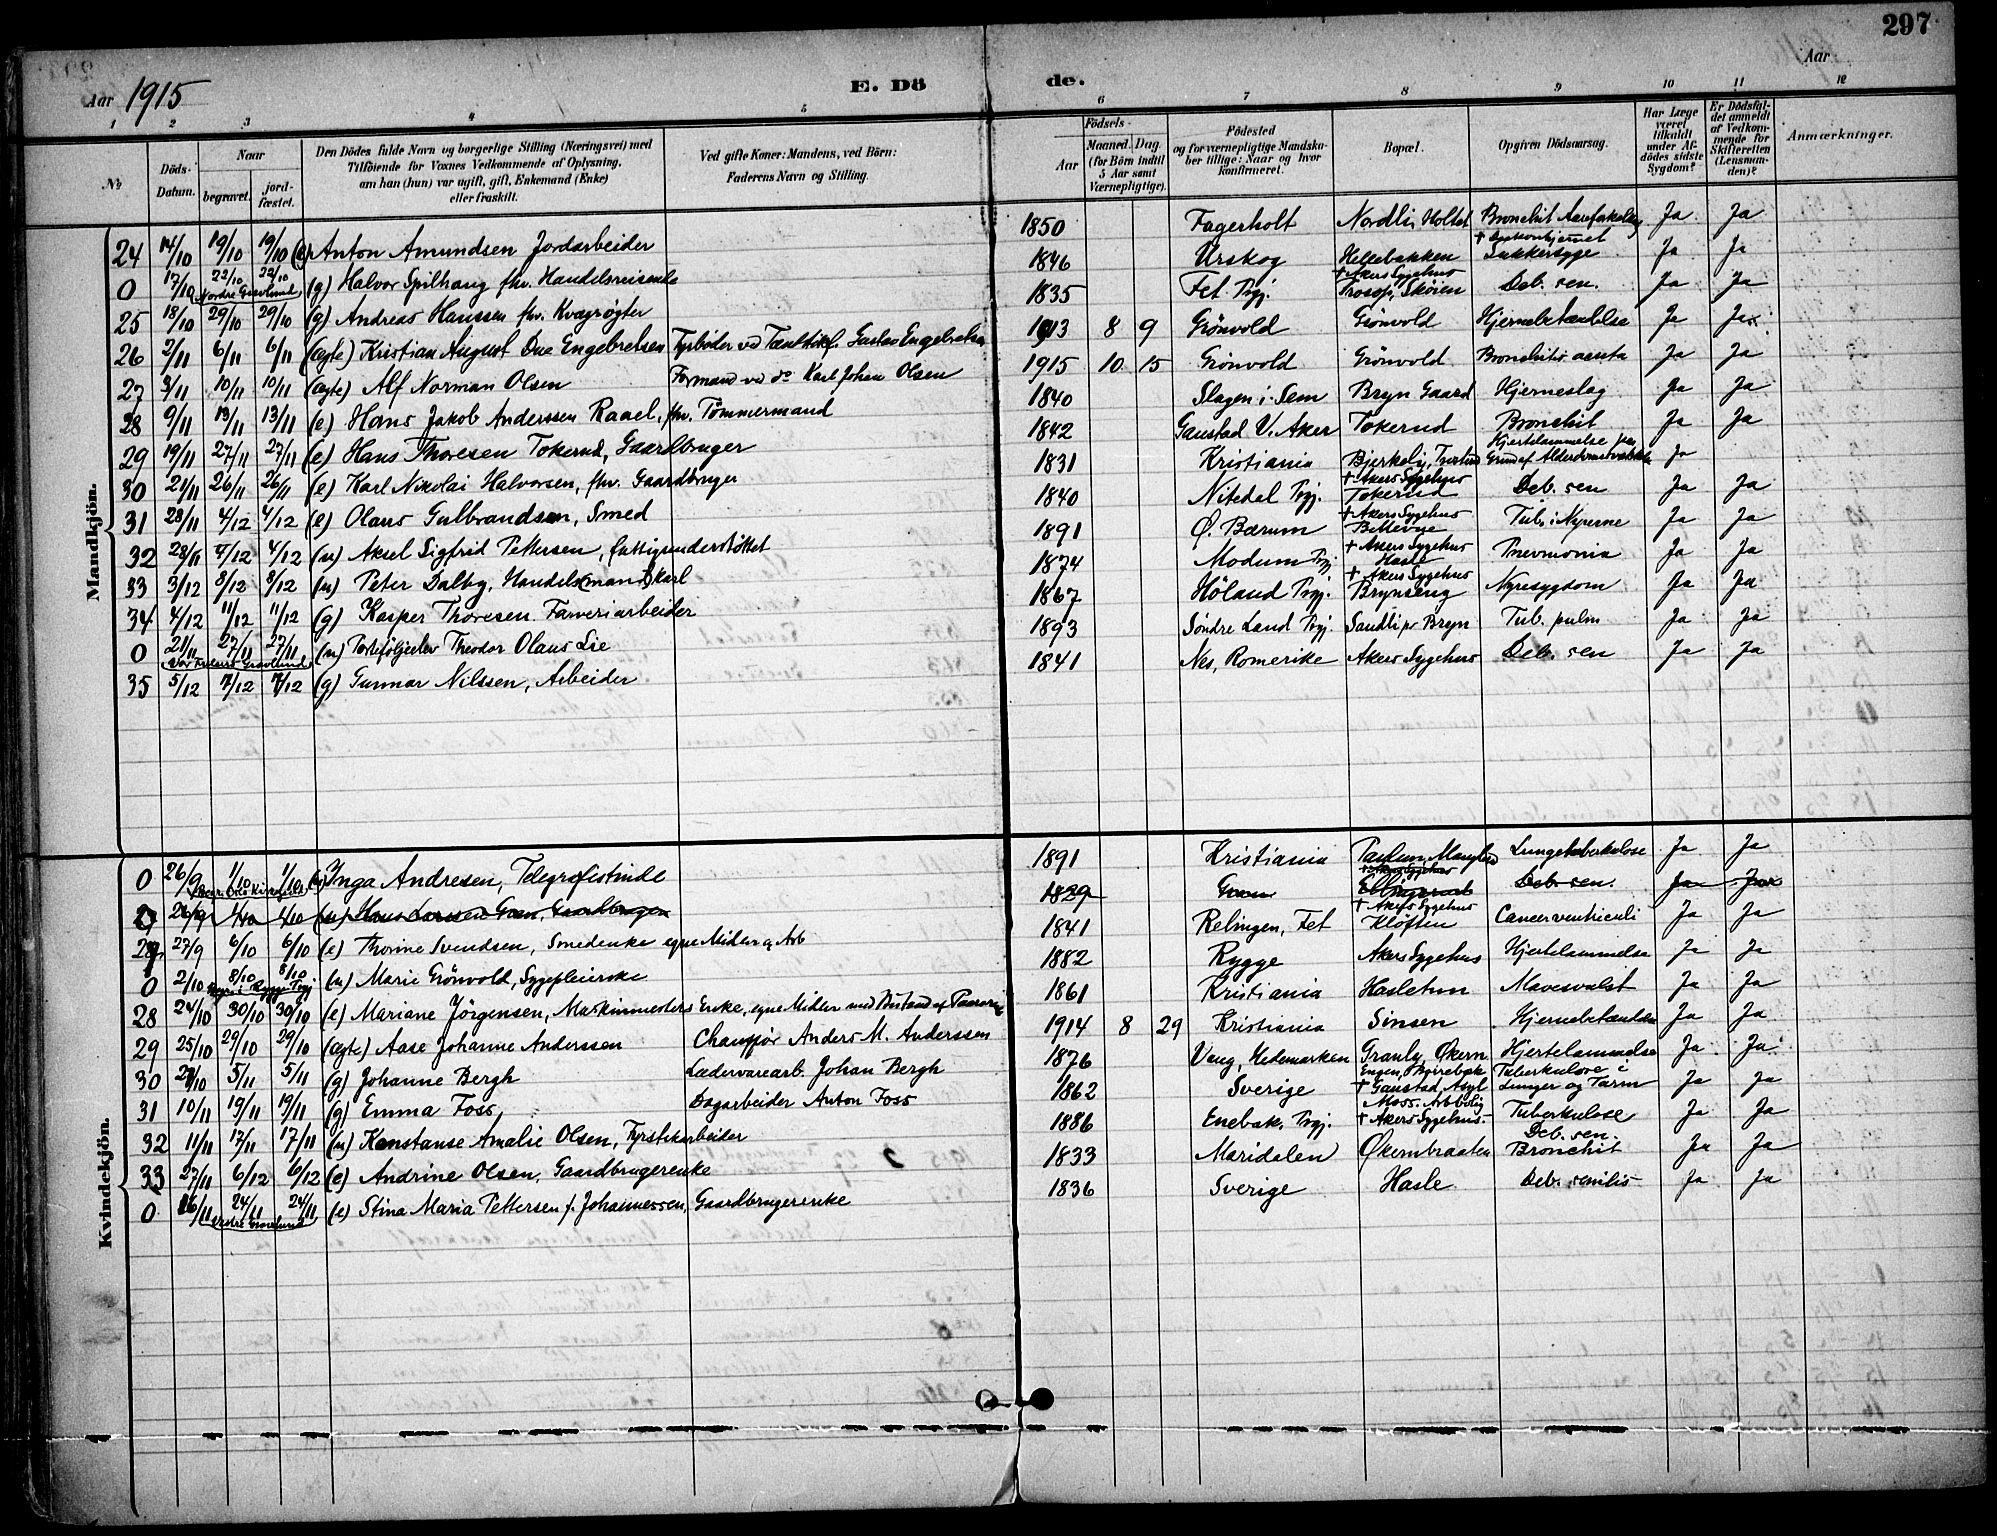 297
Aar 1915 E. Dö de. Aar
1 2 3 4 5 6 7 8 9 10 11 12
№ Döds-Datum. Naar begravet. jordfæstet. Den Dödes fulde Navn og borgerlige Stilling (Næringsvei) med Tilföiende for Voxnes Vedkommende af Oplysning, om han (hun) var ugift, gift, Enkemand (Enke) eller fraskilt. Ved gifte Koner: Mandens, ved Börn: Faderens Navn og Stilling. Födsels- Aar Maaned. Dag. (for Börn indtil 5 Aar samt Værnepligtige). Födested og for værnepligtige Mandskaber tillige: Naar og hvor konfirmeret. Bopæl. Opgiven Dödsaarsag. Har Læge været tilkaldt under Afdödes sidste Sygdom? Er Dödsfaldet anmeldt af Vedkommende for Skifteretten (Lensmanden)? Anmærkninger.
Mandkjön.
24 14/10 19/10 19/10 (e) Anton Amundsen Jordarbeider 1850 Fagerholt Nordli, Holtet Bronchit Ja Ja
0 17/10 22/10 22/10 (g) Halvor Spilhaug fhv. Handelsreisende 1846 Urskog Hellebakken Sukkersyge Ja Ja
Nordre Gravlund
25 18/10 29/10 29/10 (g) Andreas Hanssen fhv. Kvægrøgter 1835 Fet Prgj. + Akers Sygehus Trosop, Skøien Deb. sen. Ja Ja
26 2/11 6/11 6/11 (ægte) Kristian August Due Engebretsen Fyrbøder ved Gustav Engebretsen 1913 8 9 Grönvold Grönvold Hjernebetændelse Ja Ja
27 3/11 10/11 10/11 (ægte) Alf Norman Olsen Formand ved do Karl Johan Olsen 1915 10 15 Grönvold Grönvold Bronchitis acuta Ja Ja
28 9/11 13/11 13/11 (e) Hans Jakob Anderssen Raael, fhv. Tömmermand 1840 Slagen i Sem Bryn Gaard Hjerneslag Ja Ja
29 19/11 27/11 27/11 (e) Hans Thoresen Tokerud, Gaardbruger 1842 Gaustad V. Aker Tokerud Bronchit Ja Ja
30 21/11 26/11 26/11 (e) Karl Nikolai Halvorsen, fhv. Gaardbruger 1831 Kristiania Bjerkelij, Hjertelammelse paa Grund af Ja
31 28/11 4/12 4/12 (e) Olaus Gulbrandsen, Smed 1840 Nitedal Prgj. + Akers Sygehus Tokerud Deb. sen Ja Ja
32 28/11 4/12 4/12 (u) Aksel Sigfrid Pettersen, fattigunderstøttet 1891 Ø. Bærum + Akers Sygehus Bellevue Tub. i Nyrerne Ja Ja
33 3/12 8/12 8/12 (u) Peter Dalby, Handels(mand)karl 1874 Modum Prgj + Akers Sygehus Hasle Pnevmonia Ja Ja
34 4/12 11/12 11/12 (g) Kasper Thoresen Farveriarbeider 1867 Höland Prgj. + Akers Sygehus Brynseng Nyresygdom Ja Ja
0 21/11 27/11 27/11 (u) Theodor Olaus Lie 1893 Söndre Land Prgj. Sandli pr Bryn Tub. pulm Ja Ja
Vor Frelsers Gravlund
35 5/12 7/12 7/12 (g) Gunnar Nilssen, Arbeider 1841 Nes, Romerike Akers Sygehus Deb. sen Ja Ja
Kvindekjön.
0 26/9 1/10 1/10 (u) Inga Andresen, Telegrafistinde 1891 Kristiania Lungetuberkulose Ja Ja
26/9 4/10 4/10 (u) Hans Larssen Gran, Gaardbruger 1829 Gran Deb. sen. Ja Ja
27 27/9 6/10 6/10 (e) Thorine Svendsen, Smedenke egne Midler og Arb 1841 Relingen, Fet + Akers Sygehus Kløften Cancer ventriculi Ja Ja
0 2/10 8/10 8/10 (u) Marie Grönvold, Sygepleierske 1882 Rygge Akers Sygehus Hjertelammelse Ja Ja
Rygge Prgj
28 24/10 30/10 30/10 (e) Mariane Jörgensen, Maskinmesters Enke, egne Midler med Bistand af 1861 Kristiania Hasletun Mavesvulst Ja Ja
29 25/10 29/10 29/10 (ægte) Aase Johanne Anderssen Chauffør Anders M. Anderssen 1914 8 29 Kristiania Sinsen Hjernebetændelse Ja Ja
30 5/11 5/11 (g) Johanne Bergh Lædervarearb. Johan Bergh 1876 Vang, Hedemarken Granly, Økern Hjertelammelse Ja Ja
31 10/11 19/11 19/11 (g) Emma Foss Dagarbeider Anton Foss 1862 Sverige + Gaustad Asyl Tuberkulose i Lunger og Tarm Ja Ja
32 11/11 17/11 17/11 (u) Konstanse Amalie Olsen, Fyrstikarbeider 1886 Enebak, Prgj. + Akers Sygehus. Tuberkulose Ja Ja
33 27/11 6/12 6/12 (e) Andrine Olsen, Gaardbrugerenke 1833 Maridalen Økernbraaten Deb. sen. Bronchit Ja Ja
0 16/11 24/11 24/11 (e) Stina Maria Pettersen f. Johannessen, Gaardbrugerenke 1836 Sverige Hasle Deb. senilis Ja Ja